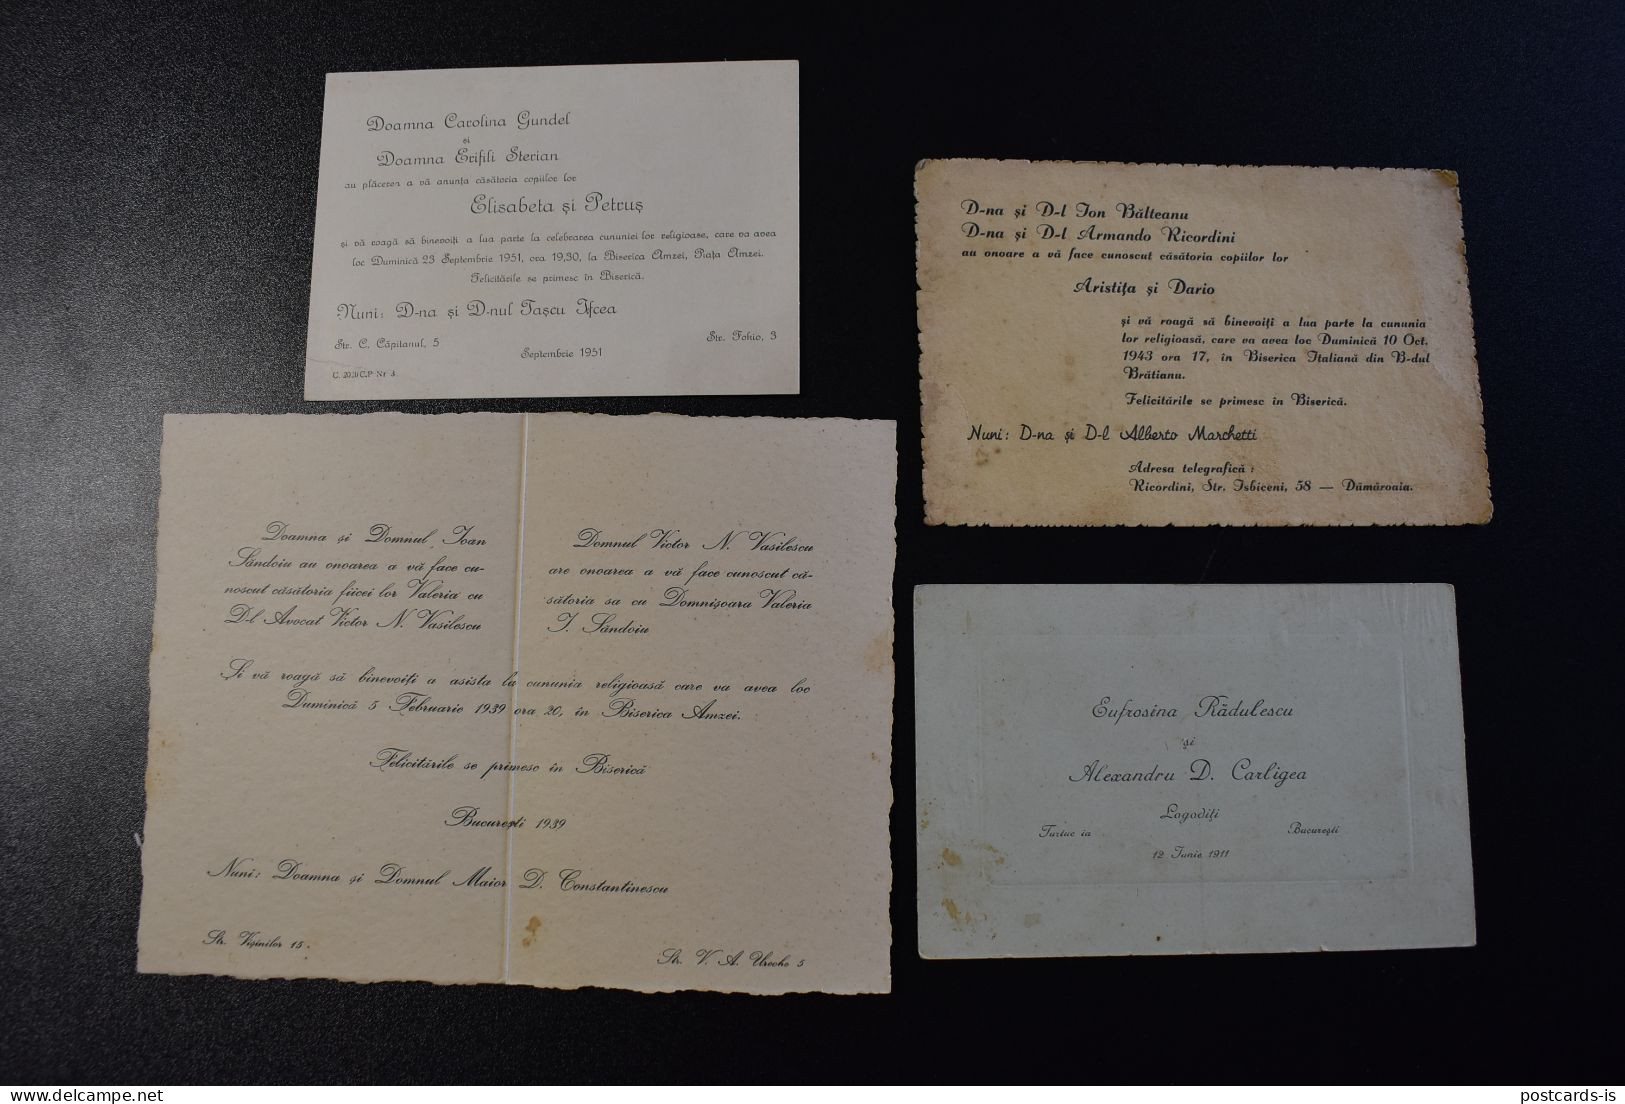 Doamna Carolina Gundel
și
Doamna Erifili Sterian
au plăcerea a vă anunța căsătoria copiilor lor
Elisabeta și Petruș
și vă roagă să binevoiți a lua parte la celebrarea cununiei lor religioase, care va avea
loc Duminică 23 Septembrie 1951, ora 19,30, la Biserica Amzei, Piața Amzei.
Felicitările se primesc în Biserică.
Nuni: D-na și D-nul Tașcu Ifcea
Str. C. Căpitanul, 5
Str. Tokio, 3
Septembrie 1951
D-na și D-l Ion Bălteanu
D-na și D-l Armando Ricordini
au onoare a vă face cunoscut căsătoria copiilor lor
Aristița și Dario
și vă roagă să binevoiți a lua parte la cununia
lor religioasă, care va avea loc Duminică 10 Oct.
1943 ora 17, în Biserica Italiană din B-dul
Brătianu.
Felicitările se primesc în Biserică.
Nuni: D-na și D-l Alberto Marchetti
Adresa telegrafică :
Ricordini, Str. Isbiceni, 58 — Dămăroaia.
Doamna și Domnul Ioan
Săndoiu au onoarea a vă face cu-
noscut căsătoria fiicei lor Valeria cu
D-l Avocat Victor N. Vasilescu
Domnul Victor N. Vasilescu
are onoarea a vă face cunoscut că-
sătoria sa cu Domnișoara Valeria
I. Săndoiu
Și vă roagă să binevoiți a asista la cununia religioasă care va avea loc
Duminică 5 Februarie 1939 ora 20, în Biserica Amzei.
Felicitările se primesc în Biserică
București 1939
Nuni: Doamna și Domnul Maior D. Constantinescu
Str. Vișinilor 15.
Str. V. A. Ureche 5
Eufrosina Rădulescu
și
Alexandru D. Carligea
Logodiți
Turtuc ia
București
12 Iunie 1911
postcards-is